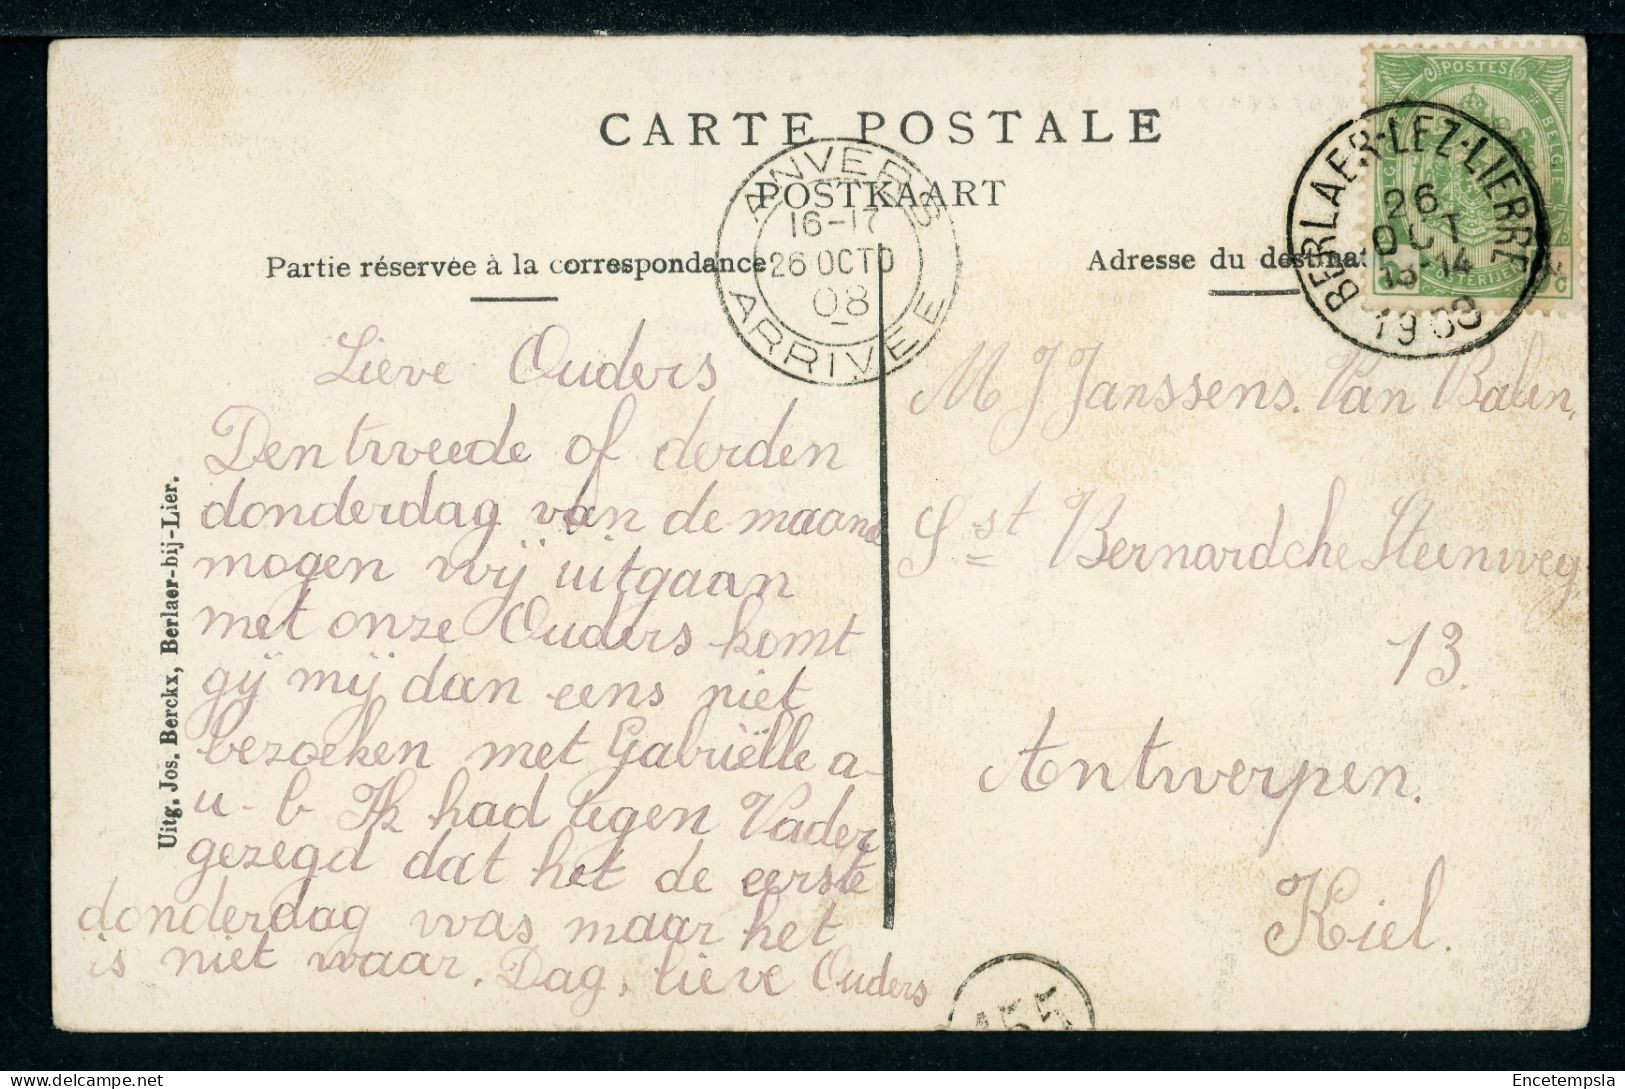 CARTE POSTALE
POSTKAART
Partie réservée à la correspondance
Adresse du destinat
ANVERS
16-17
26 OCTO
08
ARRIVEE
POSTES
BELGIE
BERLAER-LEZ-LIERRE
26
OCT
13-14
1908
Lieve Ouders
Den tweede of derden
donderdag van de maand
mogen wij uitgaan
met onze Ouders komt
gij mij dan eens niet
bezoeken met Gabriëlle a-
u-b Ik had tegen Vader
gezegd dat het de eerste
donderdag was maar het
is niet waar. Dag, lieve Ouders
M J Janssens. Van Balen,
St Bernardche Steenweg
13.
Antwerpen.
Kiel.
Uitg. Jos. Berckx, Berlaer-bij-Lier.
Encetempsla